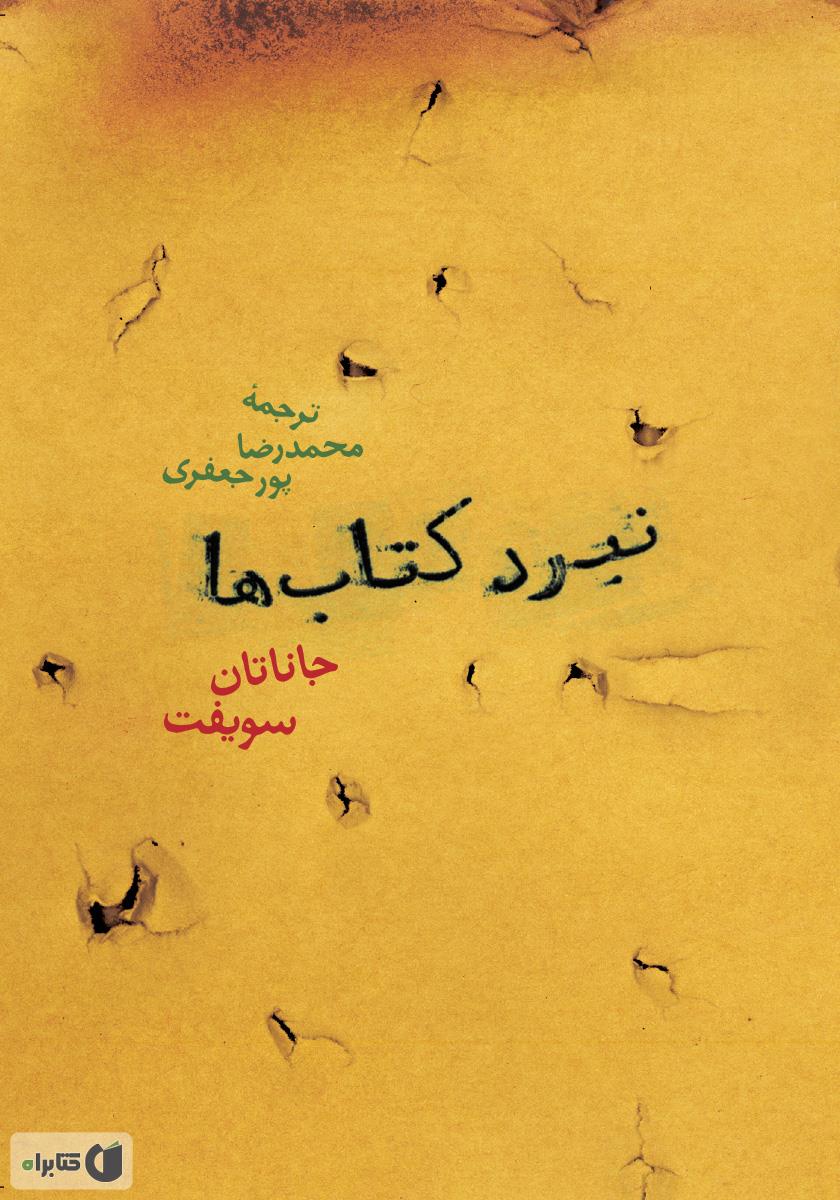 ترجمهٔ
محمدرضا
پورجعفری
نبرد کتاب‌ها
جاناتان
سویفت
کتابراه